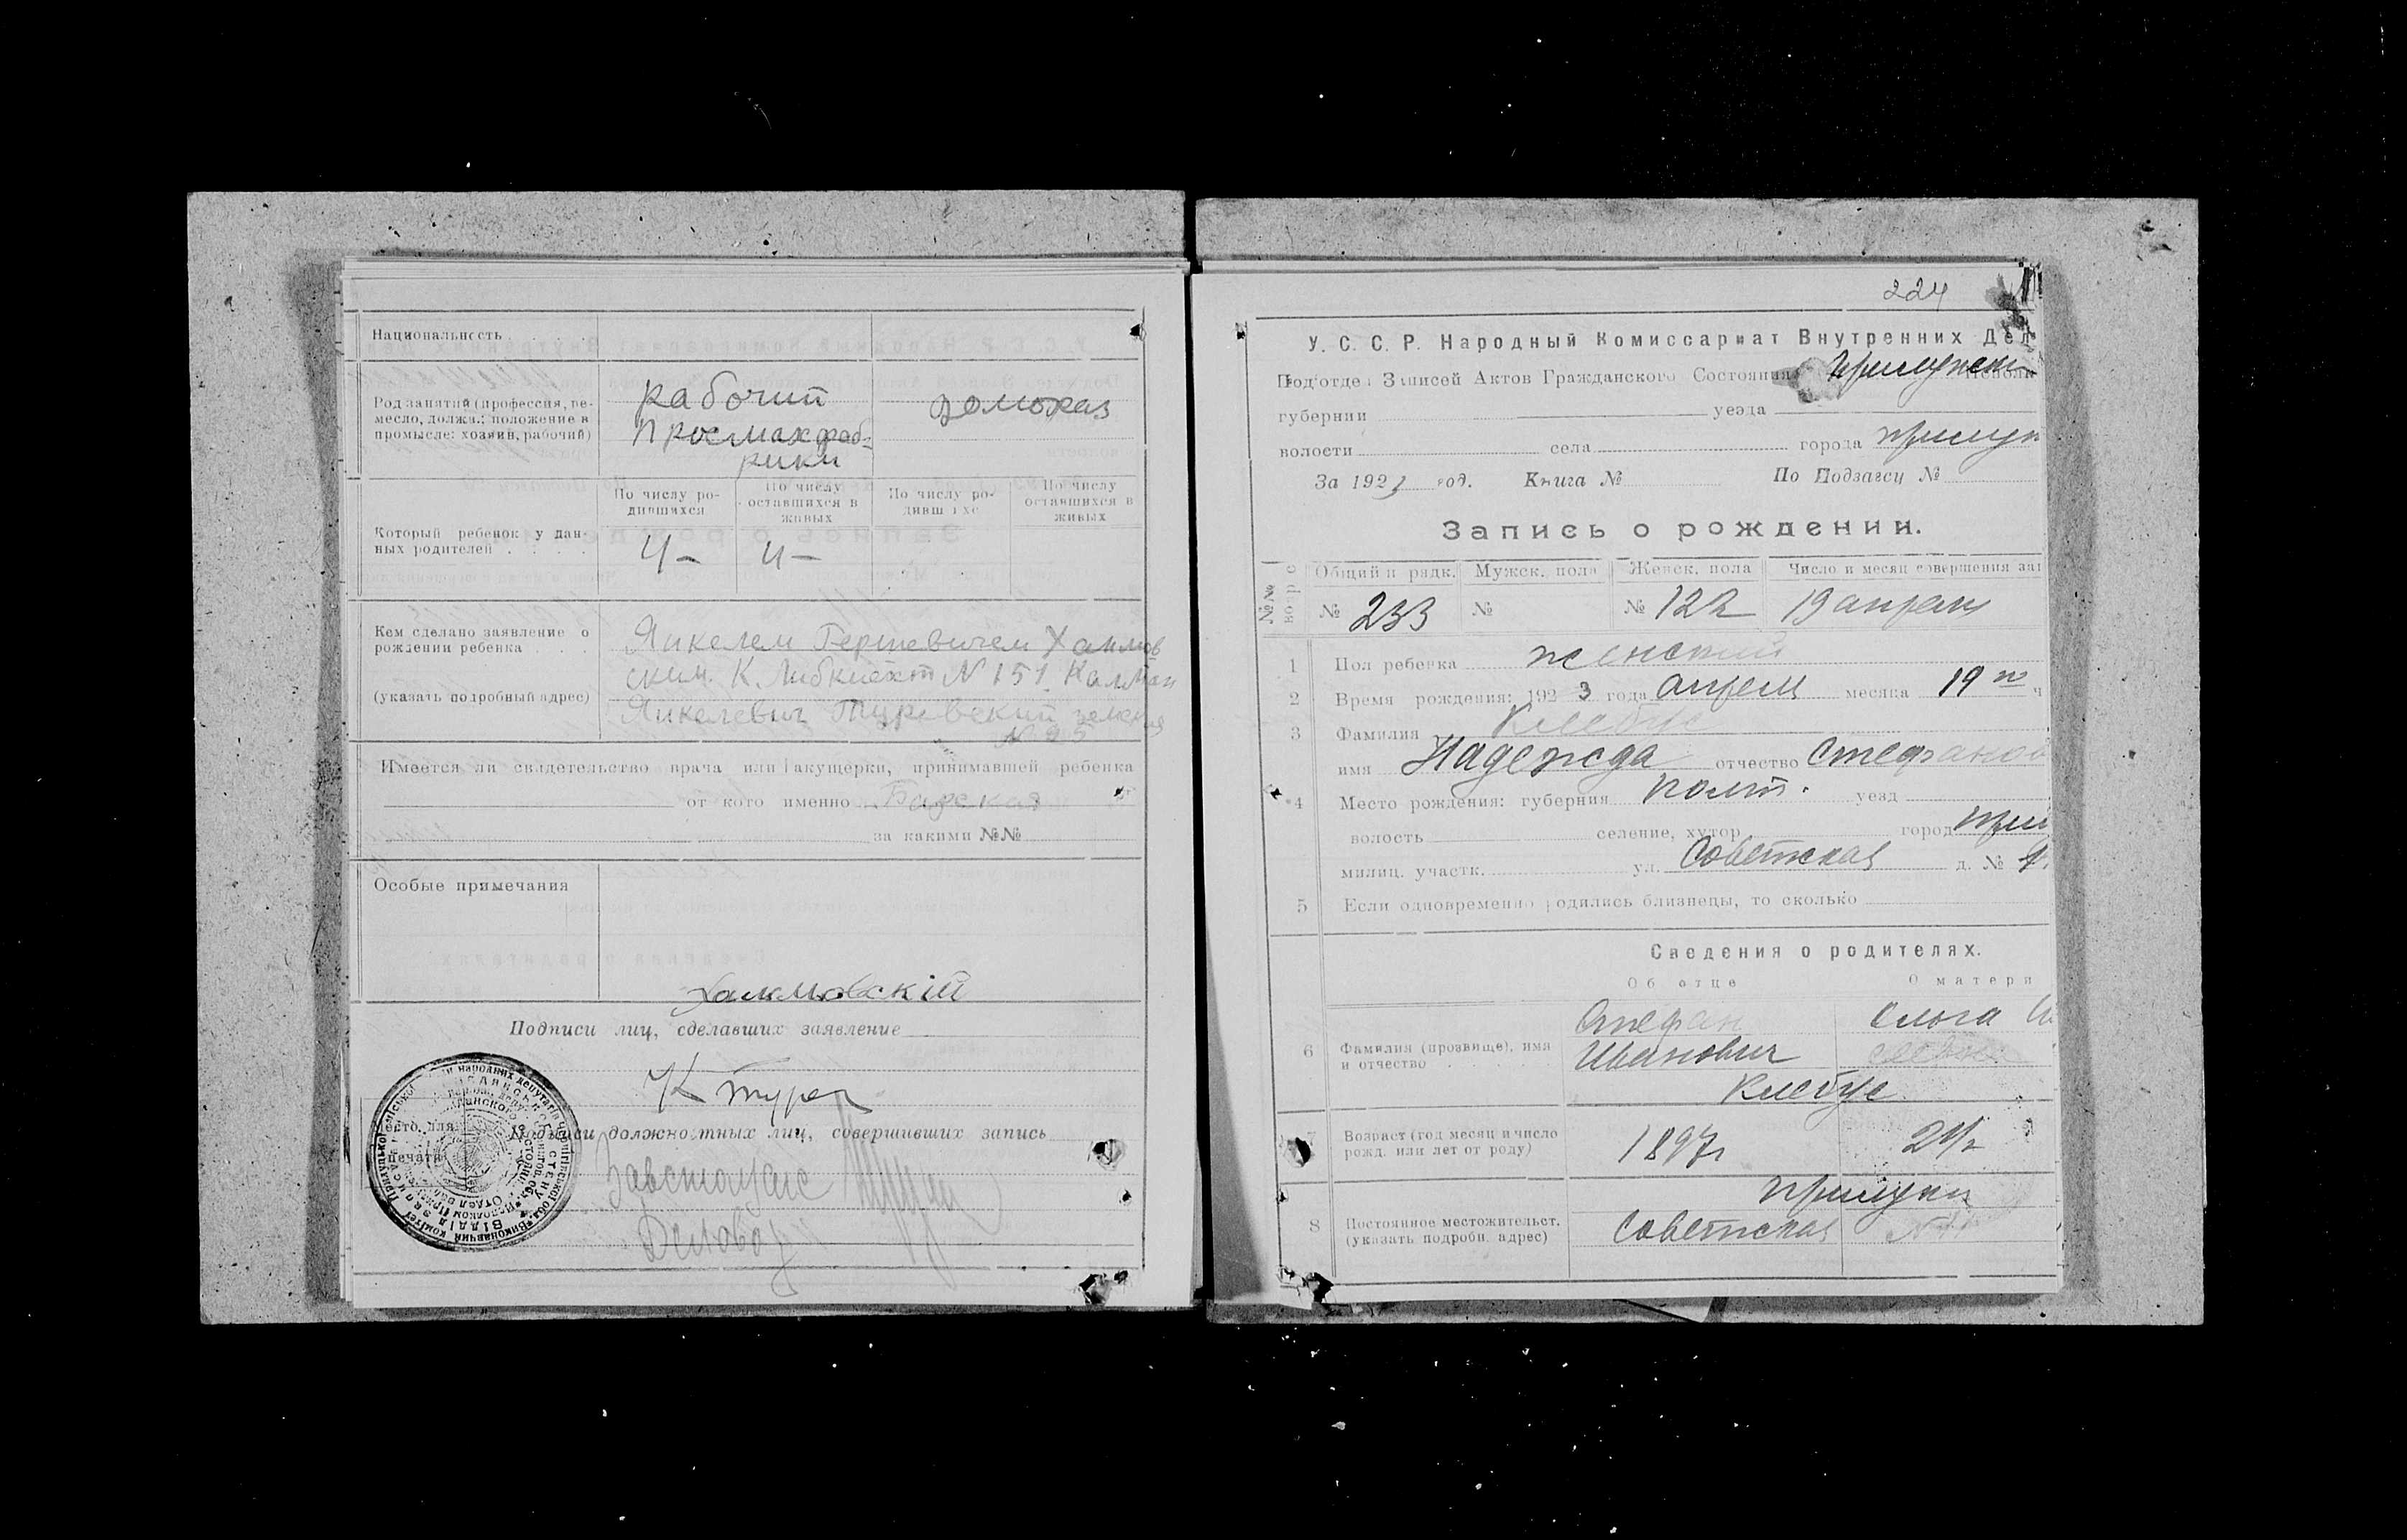 Национальность
Род занятий (профессия, ре-
месло, должн.; положение в
промысле: хозяин, рабочий)
рабочий
махфаб-
рики
домохоз
Который ребенок у дан-
ных родителей
По числу ро-
дившихся
По числу
оставшихся в
живых
По числу ро-
дивш хс
По числу
оставшихся в
живых
4 –
4 –
Кем сделано заявление о
рождении ребенка
(указать подробный адрес)
Янкелем Гершевичем Хаимов
ским. К. Либкнехт N 151 Калман
Янкелевич Туревский
N 95
Имеется ли свидетельство врача или акушерки, принимавшей ребенка
от кого именно Барская
за какими №№
Особые примечания
Хаимовскій
Подписи лиц, сделавших заявление
К Тур
Подписи должностных лиц, совершивших запись
Место для
печати
Завстолзагс
Деловод
224
У. С. С. Р. Народный Комиссариат Внутренних Дел
Под'отдел Записей Актов Гражданского Состояния Прилукск
губернии уезда
волости села города Прилук
За 1923 год. Книга № По Подзагсу №
Запись о рождении.
Общий п рядк. Мужск. пола Женск. пола Число и месяц совершения зап
№ 233 № № 122 19 апреля
1 Пол ребенка женский
2 Время рождения: 1923 года апреля месяца 19 го ч
3 Фамилия Клебус
имя Надежда отчество Стефанов
4 Место рождения: губерния Полт. уезд
волость селение, хутор город При
милиц. участк. ул. Советская д. №
5 Если одновременно родились близнецы, то сколько
Сведения о родителях.
Об отце О матери
6 Фамилия (прозвище), имя
и отчество
Стефан
Иванович
Ольга
Клебус
7 Возраст (год месяц и число
рожд. или лет от роду)
1897г
24
8 Постоянное местожительст.
(указать подробн. адрес)
Прилуки
Советская